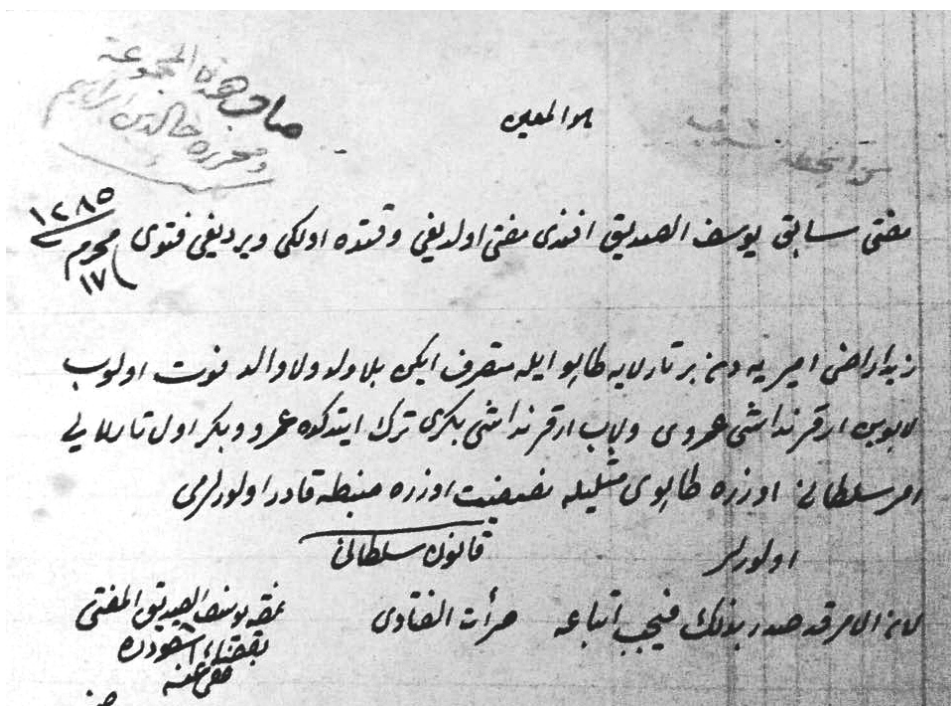 صاحب هذه المجموعة
ومحرره خالد بن ابراهيم
هو المعين
مفتئ سابق يوسف الصديق افندى مفتى اولديغى وقتده اولكى ويرديغى فتوى
١٢٨٥
محرم
١٧
زيد اراضئ اميريه دن بر تارلايه طاپو ايله متصرف ايكن بلا ولد ولا والد فوت اولوب
لابوين ار قرنداشى عمروى ولاب ار قرنداشى بكرى ترك ايتدكده عمرو وبكر اول تارلايى
امر سلطانى اوزره طاپوى مثليله نصفيت اوزره ضبطه قادر اولورلرمى
اولورلر
قانون سلطانى
لان الامر قد صدر بذلك فيجب اتباعه مرأت الفتاوى
نمقه يوسف الصديق المفتى
بقضاء
عفى عنه